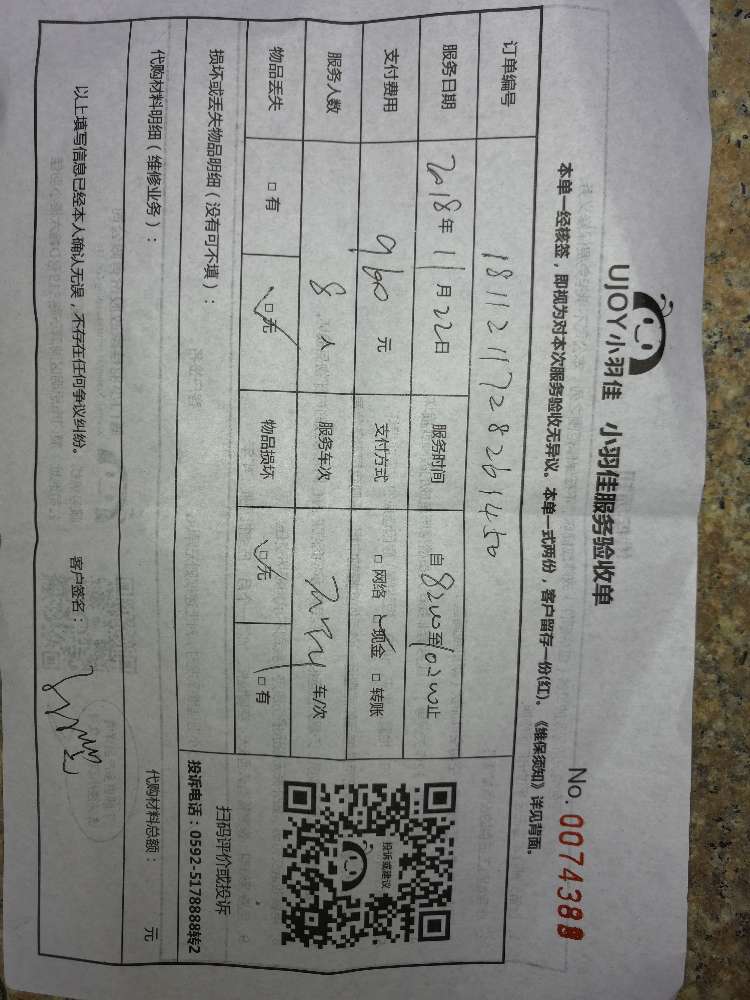 UJOY小羽佳 小羽佳服务验收单
No. 0074383
本单一经核签，即视为对本次服务验收无异议。本单一式两份，客户留存一份(红)。《维保须知》详见背面。
订单编号
服务日期 2018年11月22日 服务时间 自 至 止
支付费用 960元 支付方式 □网络 □现金 □转账
服务人数 8人 服务车次 车/次
物品丢失 □有 □无 物品损坏 □无 □有
投诉或建议
扫码评价或投诉
投诉电话：0592-5178888转2
损坏或丢失物品明细（没有可不填）：
代购材料明细（维修业务）： 代购材料总额： 元
以上填写信息已经本人确认无误，不存在任何争议纠纷。 客户签名：